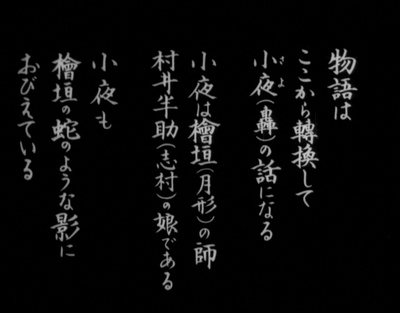 物語は
ここから轉換して
小夜(轟)の話になる
小夜は檜垣(月形)の師
村井半助(志村)の娘である
小夜も
檜垣の蛇のような影に
おびえている